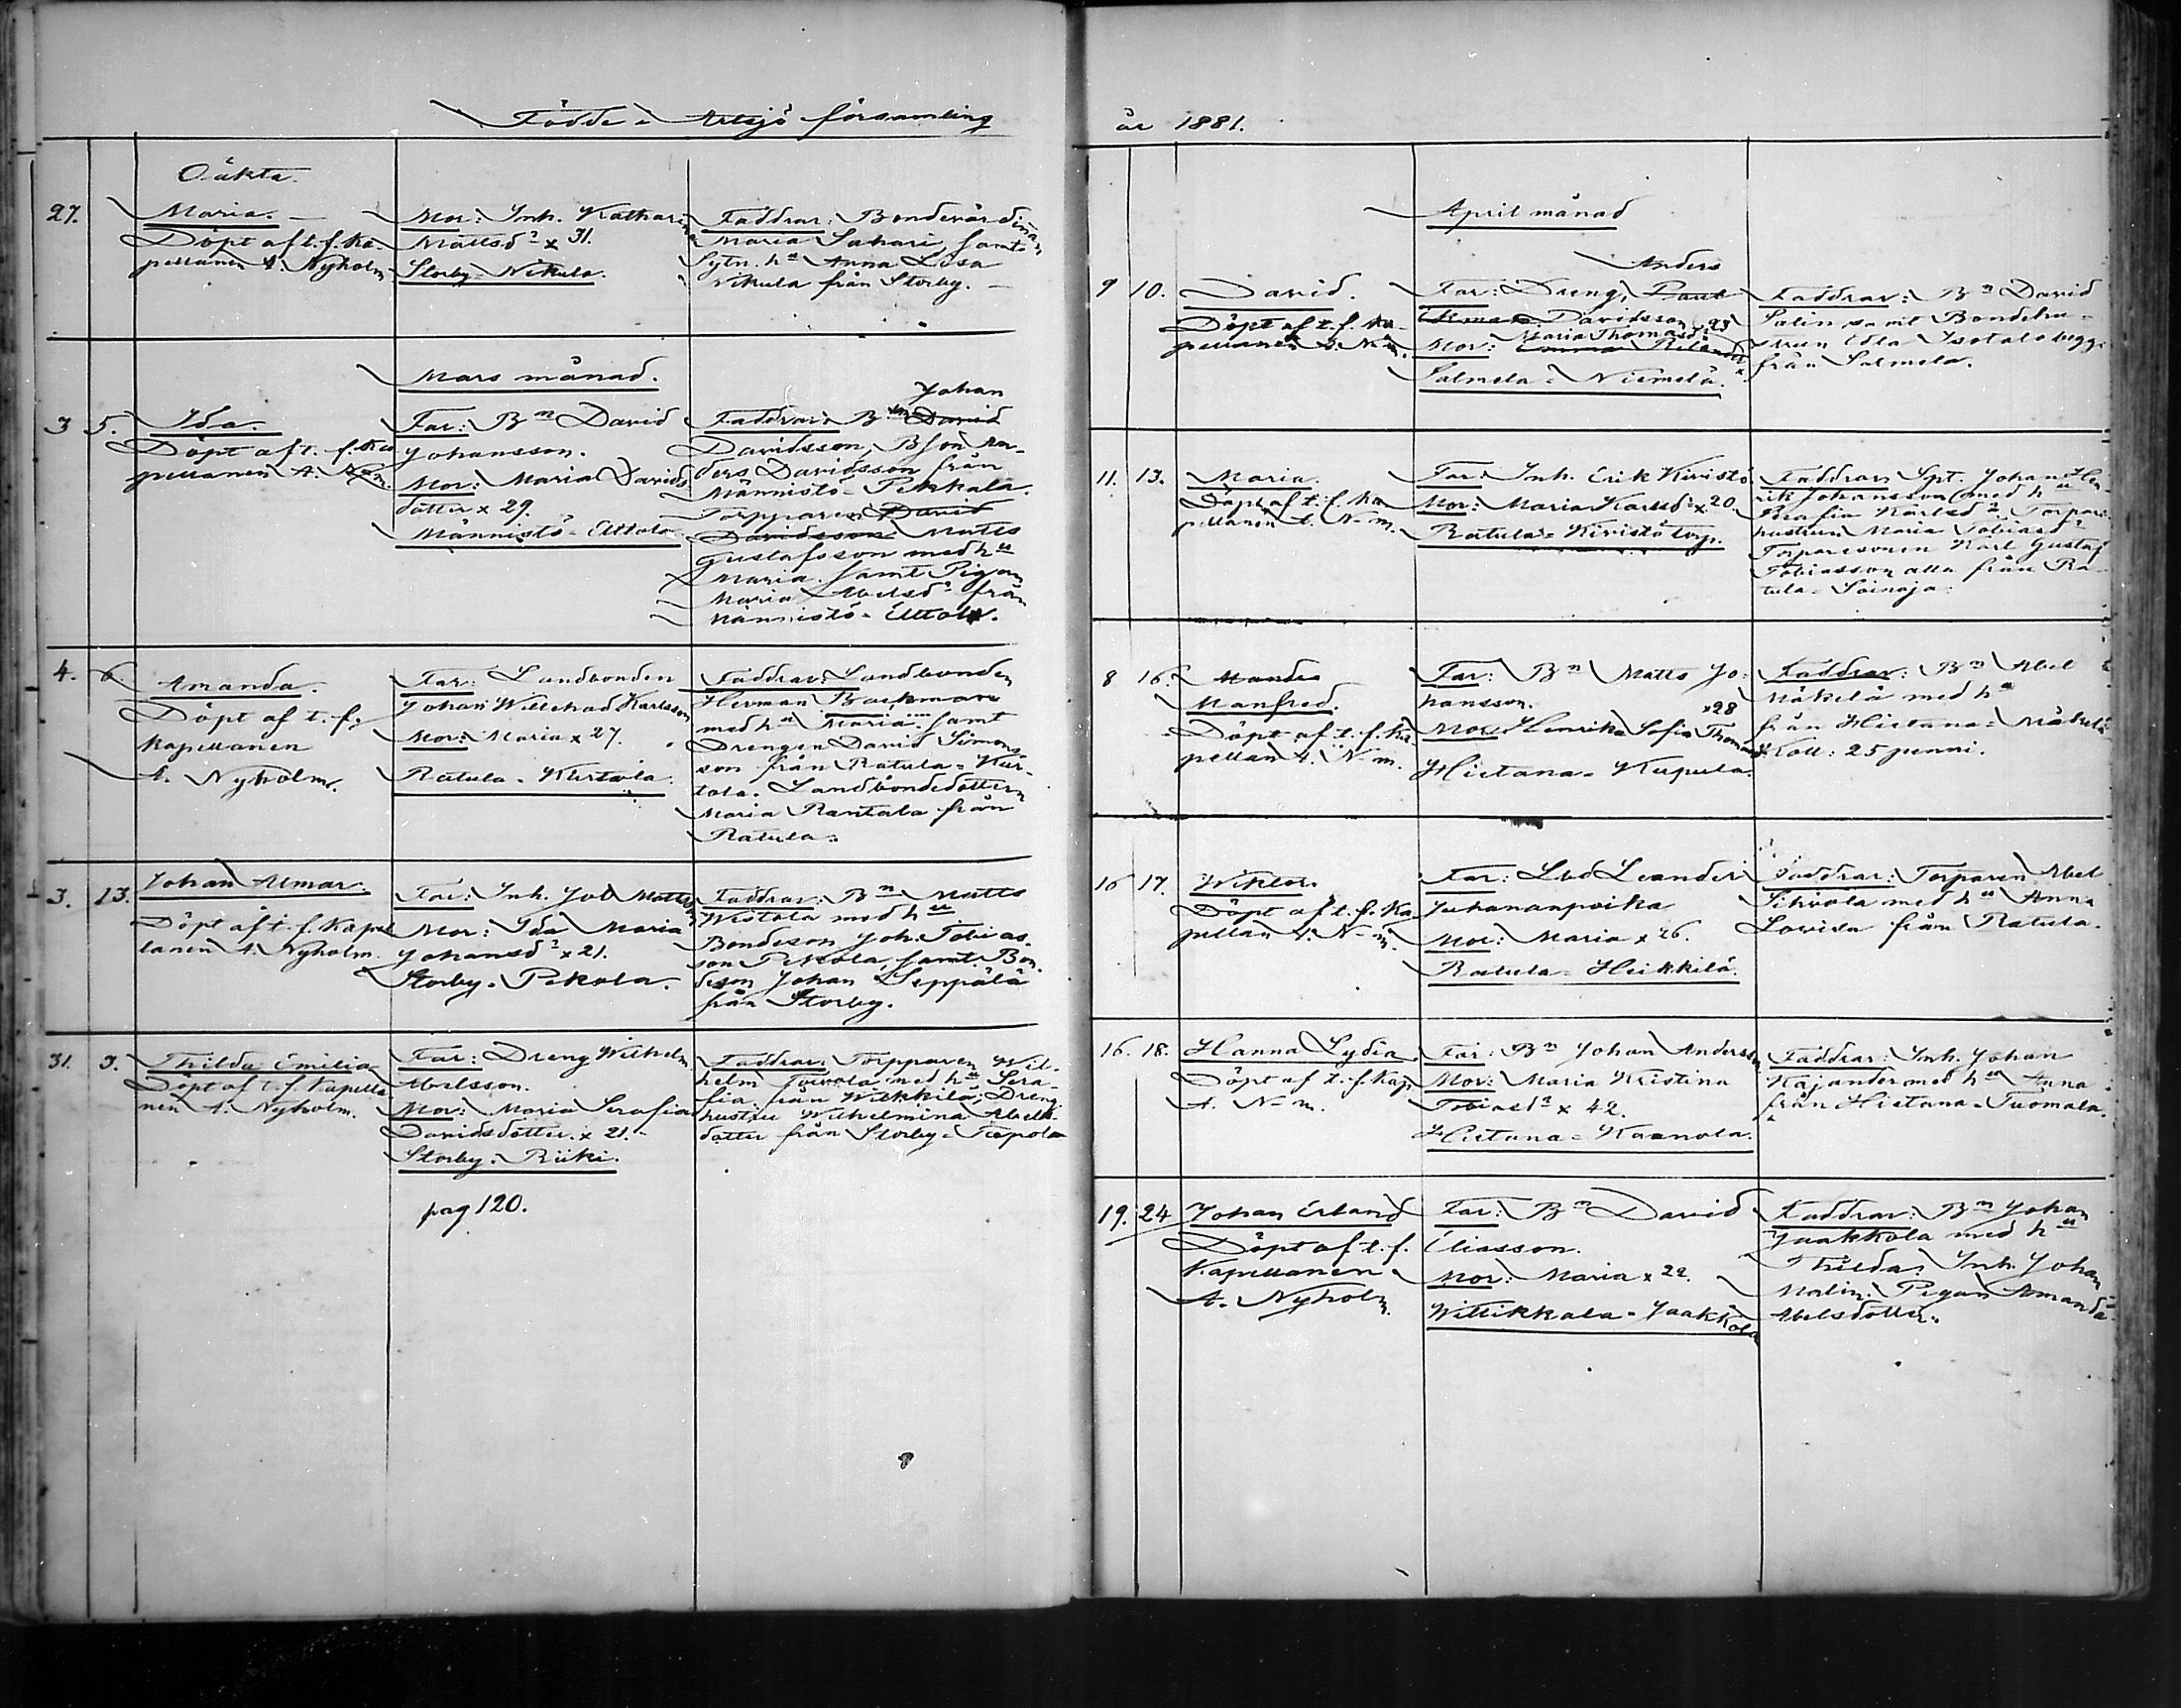 Födde i Artsjö församling
Oäkta.
27.
Maria.
Döpt af t. f. Ka-
pellanen A. Nyholm
Mor: Inh. Katharina
Mattsdr x 31.
Storby Nikula.
Faddrar: Bondevärdinnan
Maria Sahari, samt
Sytn. hu Anna Lisa
Nikula från Storby.
Mars månad.
3 5.
Ida.
Döpt af t. f. Ka
pellanen A. N-m.
Far: Bn David
Johansson.
Mor: Maria Davids
dotter x 29.
Männistö-Ettola
Johan
Faddrar: Bn David
Davidsson, Bson An-
ders Davidsson från
Männistö-Pekkala.
Torpparen David
Davidsson Matts
Gustafsson med hu
Maria. samt Pigan
Maria Abelsdr från
Männistö-Ettola.
4. 6.
Amanda.
Döpt af t. f.
Kapellanen
A. Nyholm.
Far: Landbonden
Johan Willehad Karlsson
Mor: Maria x 27.
Ratula-Kurtola.
Faddrar: Landbonden
Herman Backman
med hu Maria, samt
Drengen David Simons-
son från Ratula-Kur-
tola. Landbondedottern
Maria Rantala från
Ratula.
3. 13.
Johan Almar.
Döpt af t. f. Kapel
lanen A. Nyholm.
Far: Inh. Job Mattss
Mor: Ida Maria
Johansdr x 21.
Storby-Pekola.
Faddrar: Bn Matts
Wistola med hu
Bondeson Joh. Tobias-
son Pekola, samt Bon-
deson Johan Seppälä
från Storby.
31. 3.
Thilda Emilia
Döpt af t. f. Kapella
nen A. Nyholm.
Far: Dreng Wilhelm
Abelsson.
Mor: Maria Serafia
Davidsdotter x 21.
Storby-Riiki.
Faddrar: Torpparen Wil-
helm Toivola med hu Sera-
fia från Wikkilä; Dreng
hustru Wilhelmina Abels-
dotter från Storby-Tapola
pag 120.
år 1881.
April månad
9 10.
David.
Döpt af t. f. Ka-
pellanen A. N-m.
Anders
Far: Dreng,
Davidsson
Maria Thomasdr 23
Mor: Emma
Salmela-Niemelä.
Faddrar: Bn David
Salin samt Bondehu-
strun Edla Isotalo bägge
från Salmela.
11. 13.
Maria.
Döpt af t. f. Ka
pellanen A. N-m.
Far: Inh. Erik Kivistö
Mor: Maria Karlsdr x 20.
Ratula-Kivistö torp.
Faddrar: Spt. Johan Hen-
rik Johansson med hu
Serafia Karlsdr, Torpare
hustrun Maria Tobiasdr
Torparesonen Karl Gustaf
Tobiasson alla från Ra-
tula-Soinoja.
8 16.
Manda
Manfred.
Döpt af t. f. Ka
pellan A. N-m.
Far: Bn Matts Jo-
hansson.
x 28
Mor: Henrika Sofia Thomasdr
Hietana-Kupula.
Faddrar: Bn Abel
Mäkelä med hu
från Hietana-Mäkelä
Koll: 25 penni.
16 17.
Wiktor.
Döpt af t. f. Ka-
pellan A. N-m.
Far: Lbd Leander
Juhananpoika
Mor: Maria x 26.
Ratula-Heikkilä.
Faddrar: Torparen Abel
Sihvola med hu Anna
Lovisa från Ratula.
16. 18.
Hanna Lydia
Döpt af t. f. Kap.
A. N-m.
Far: Bn Johan Andersson
Mor: Maria Kristina
Tobiasdr x 42.
Hietana-Kaanola.
Faddrar: Inh. Johan
Kajander med hu Anna
från Hietana-Tuomala.
19. 24
Johan Erland
Döpt af t. f.
Kapellanen
A. Nyholm.
Far: Bn David
Eliasson.
Mor: Maria x 22.
Willikkala-Jaakkola
Faddrar: Bn Johan
Jaakkola med hu
Thilda, Inh. Johan
Malin. Pigan Amanda
Abelsdotter.